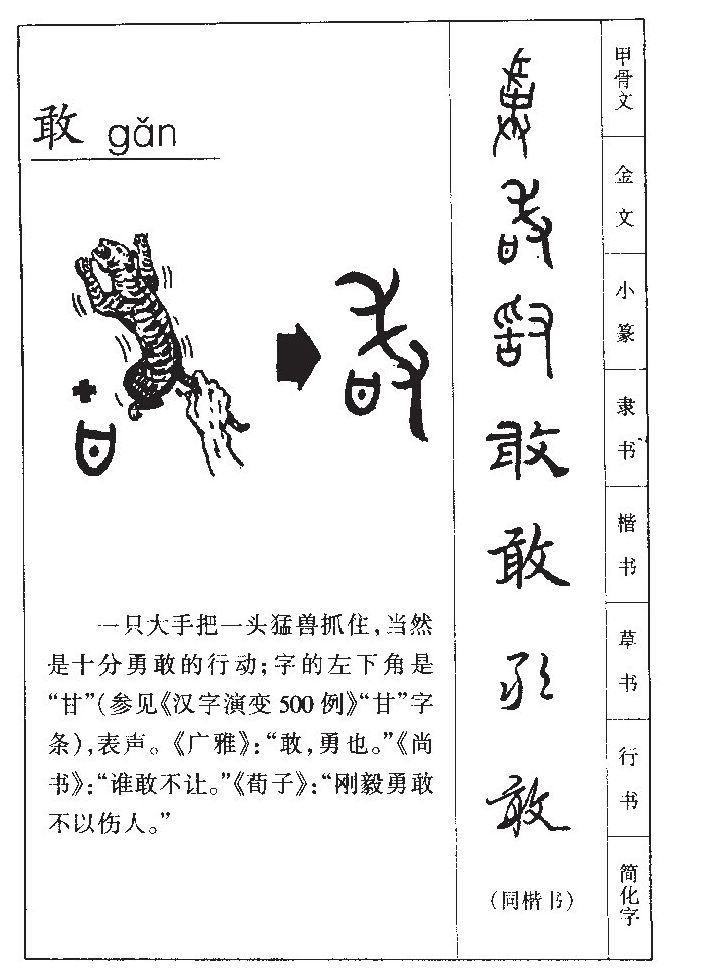 敢 gǎn
一只大手把一头猛兽抓住，当然
是十分勇敢的行动；字的左下角是
“甘”（参见《汉字演变500例》“甘”字
条），表声。《广雅》：“敢，勇也。”《尚
书》：“谁敢不让。”《荀子》：“刚毅勇敢
不以伤人。”
敢
敢
敢
敢
敢
敢
敢
（同楷书）
甲骨文
金文
小篆
隶书
楷书
草书
行书
简化字